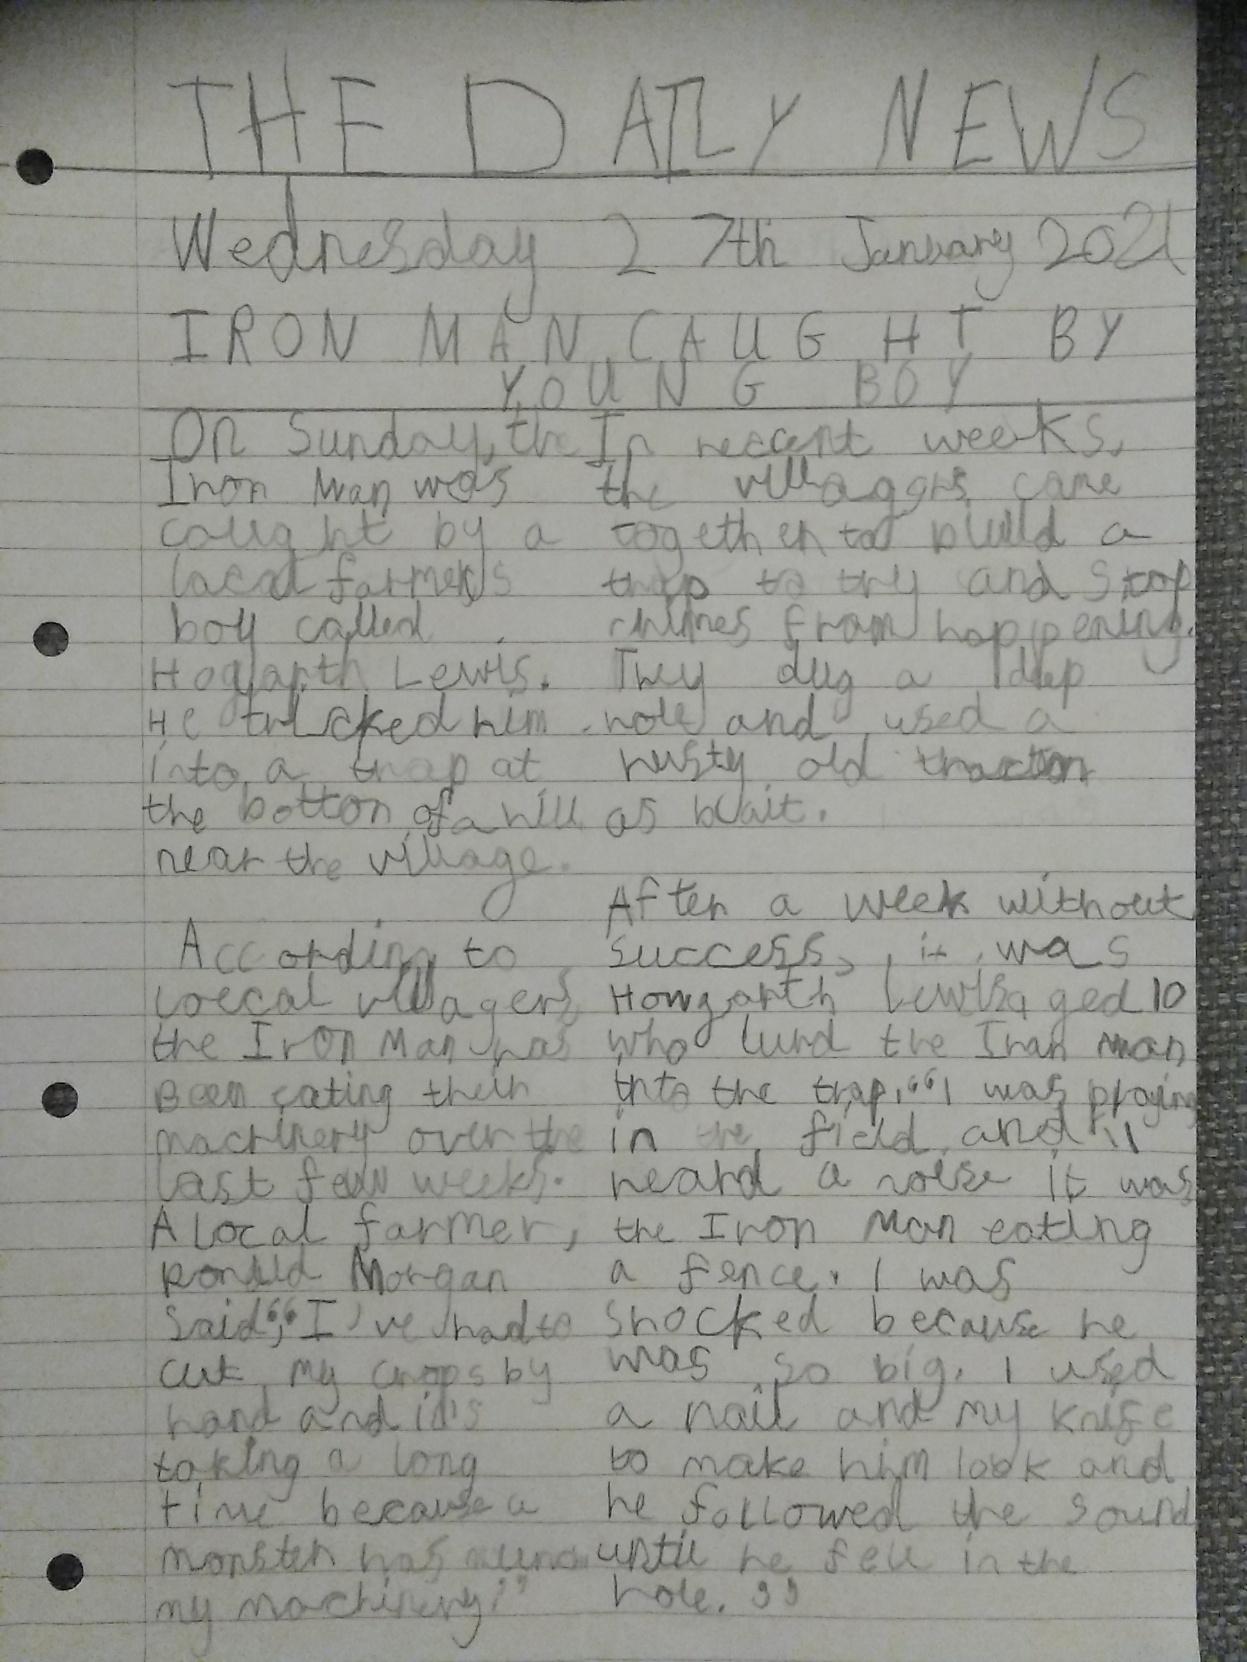 THE DAILY NEWS
Wednesday 27th January 2021
IRON MAN CAUGHT BY
YOUNG BOY
On Sunday, the
Iron Man was
caught by a
local farmer's
boy called
Hogarth Lewis.
He tricked him
into a trap at
the bottom of a hill
near the village.
According to
loecal villagers,
the Iron Man has
Been eating their
machinery over the
last few weeks.
A local farmer,
Ronald Morgan
said, “I've had to
cut my crops by
hand and it's
taking a long
time because a
monster has
my machinery.”
In recent weeks,
the villagers came
together to build a
trap to try and stop
crimes from happening.
They dug a deep
hole and used a
rusty old tractor
as bait.
After a week without
success, it was
Howgarth Lewis aged 10
who lurd the Iron Man
into the trap. “I was playing
in the field and I
heard a noise it was
the Iron Man eating
a fence. I was
shocked because he
was so big. I used
a nail and my knife
to make him look and
he followed the sound
until he fell in the
hole.”